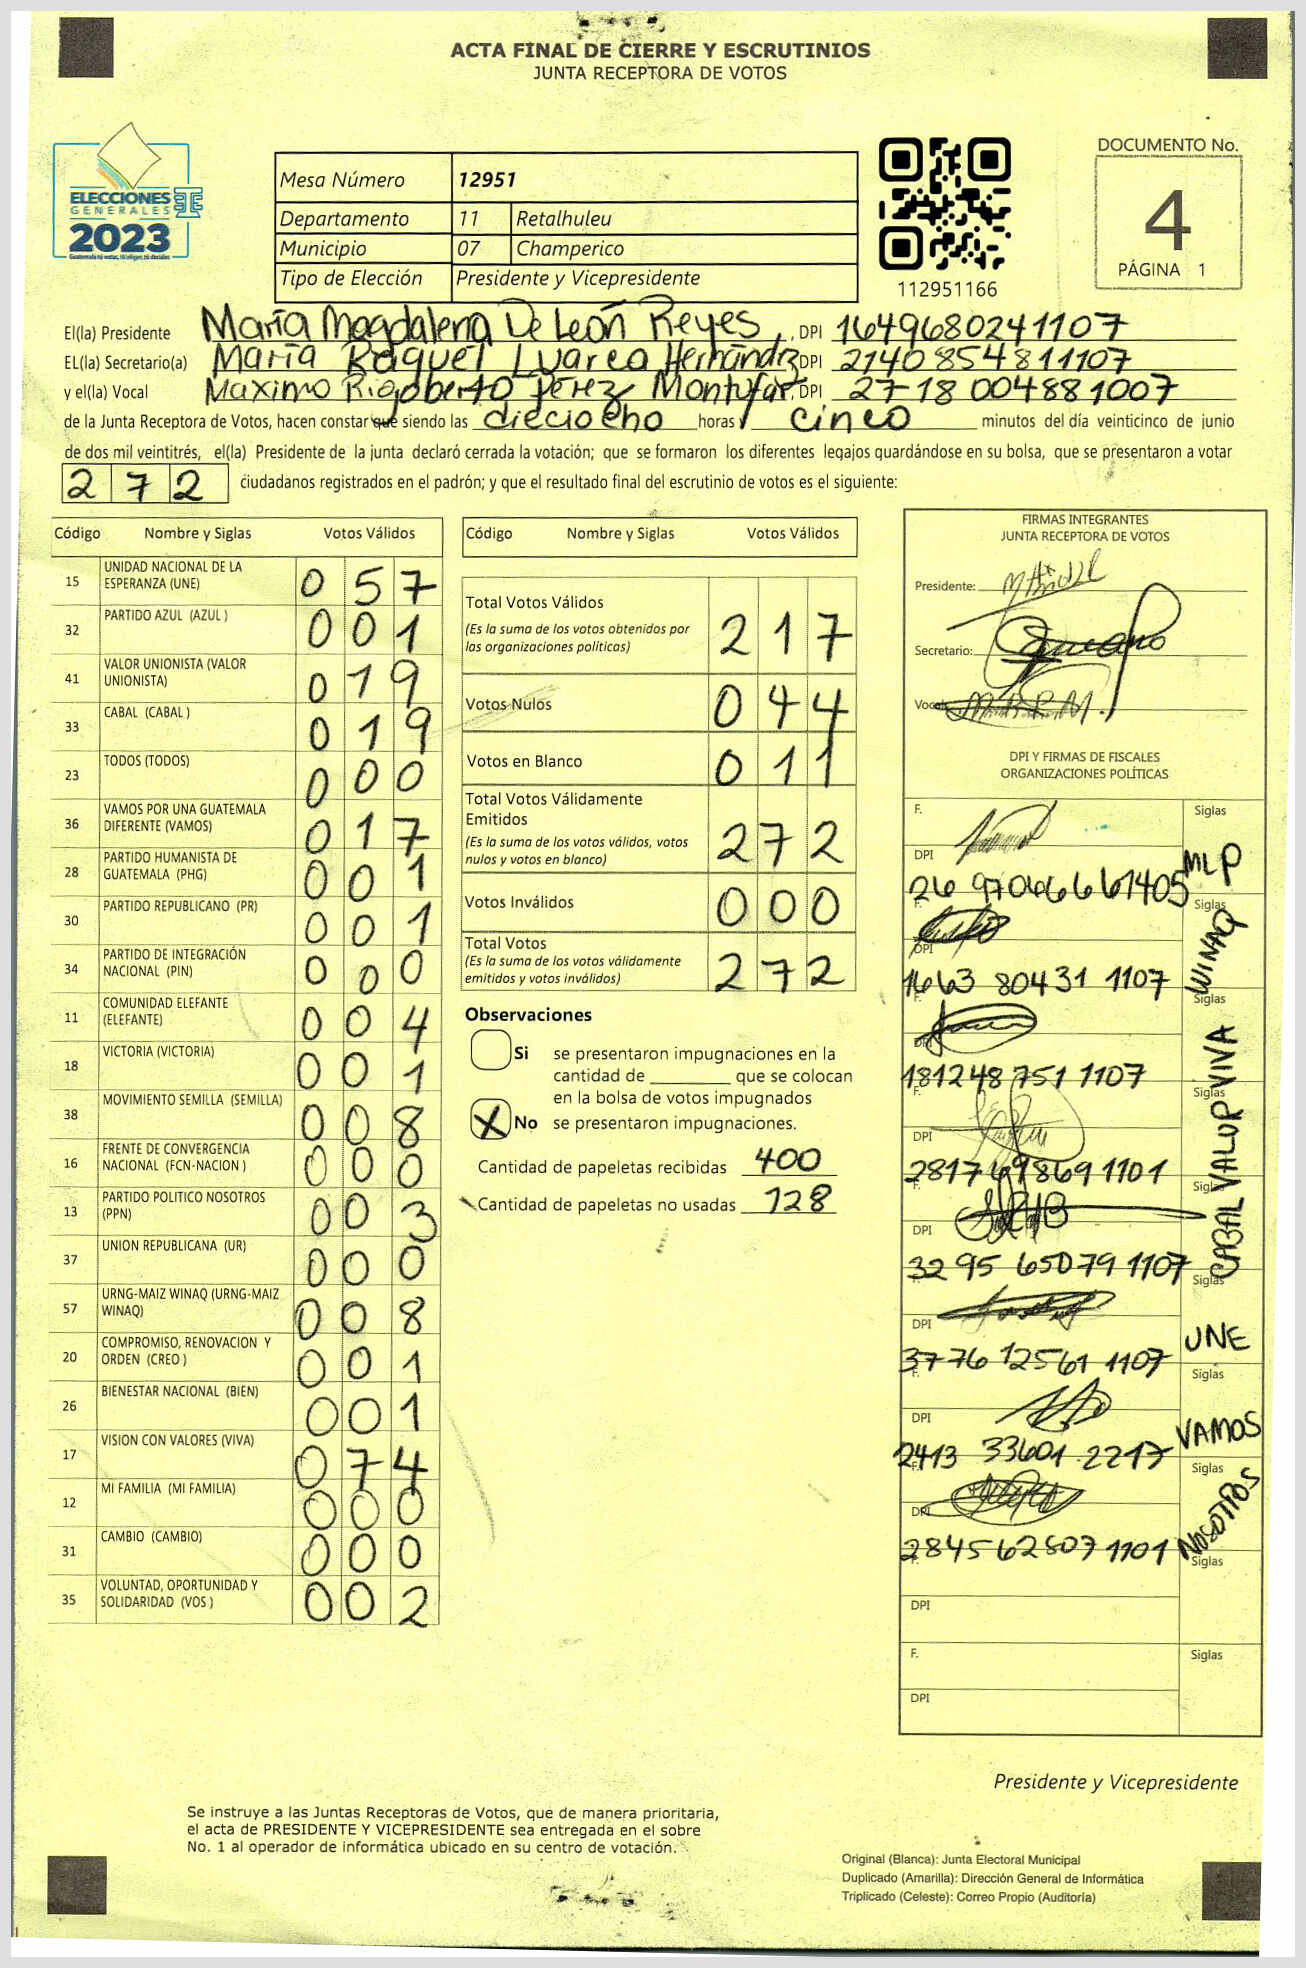 ACTA FINAL DE CIERRE Y ESCRUTINIOS
JUNTA RECEPTORA DE VOTOS
ELECCIONES
GENERALES
2023
Guatemala tú votas, tú eliges, tú decides
Mesa Número 12951
Departamento 11 Retalhuleu
Municipio 07 Champerico
Tipo de Elección Presidente y Vicepresidente
112951166
DOCUMENTO No.
4
PÁGINA 1
El(la) Presidente María Magdalena De León Reyes, DPI 1649680241107
EL(la) Secretario(a) María Raquel Luarca Hernández DPI 2140854811107
y el(la) Vocal Maximo Rigoberto Pérez Montufar, DPI 2718004881007
de la Junta Receptora de Votos, hacen constar que siendo las dieciocho horas y cinco minutos del día veinticinco de junio
de dos mil veintitrés, el(la) Presidente de la junta declaró cerrada la votación; que se formaron los diferentes legajos guardándose en su bolsa, que se presentaron a votar
272 ciudadanos registrados en el padrón; y que el resultado final del escrutinio de votos es el siguiente:
Código Nombre y Siglas Votos Válidos
15 UNIDAD NACIONAL DE LA ESPERANZA (UNE) 057
32 PARTIDO AZUL (AZUL ) 001
41 VALOR UNIONISTA (VALOR UNIONISTA) 019
33 CABAL (CABAL ) 019
23 TODOS (TODOS) 000
36 VAMOS POR UNA GUATEMALA DIFERENTE (VAMOS) 017
28 PARTIDO HUMANISTA DE GUATEMALA (PHG) 001
30 PARTIDO REPUBLICANO (PR) 001
34 PARTIDO DE INTEGRACIÓN NACIONAL (PIN) 000
11 COMUNIDAD ELEFANTE (ELEFANTE) 004
18 VICTORIA (VICTORIA) 001
38 MOVIMIENTO SEMILLA (SEMILLA) 008
16 FRENTE DE CONVERGENCIA NACIONAL (FCN-NACION ) 000
13 PARTIDO POLITICO NOSOTROS (PPN) 003
37 UNION REPUBLICANA (UR) 000
57 URNG-MAIZ WINAQ (URNG-MAIZ WINAQ) 008
20 COMPROMISO, RENOVACION Y ORDEN (CREO ) 001
26 BIENESTAR NACIONAL (BIEN) 001
17 VISION CON VALORES (VIVA) 074
12 MI FAMILIA (MI FAMILIA) 000
31 CAMBIO (CAMBIO) 000
35 VOLUNTAD, OPORTUNIDAD Y SOLIDARIDAD (VOS ) 002
Código Nombre y Siglas Votos Válidos
Total Votos Válidos 217
(Es la suma de los votos obtenidos por
las organizaciones políticas)
Votos Nulos 044
Votos en Blanco 011
Total Votos Válidamente
Emitidos 272
(Es la suma de los votos válidos, votos
nulos y votos en blanco)
Votos Inválidos 000
Total Votos 272
(Es la suma de los votos válidamente
emitidos y votos inválidos)
Observaciones
Si se presentaron impugnaciones en la
cantidad de ________ que se colocan
en la bolsa de votos impugnados
X No se presentaron impugnaciones.
Cantidad de papeletas recibidas 400
Cantidad de papeletas no usadas 128
FIRMAS INTEGRANTES
JUNTA RECEPTORA DE VOTOS
Presidente:
Secretario:
Vocal:
DPI Y FIRMAS DE FISCALES
ORGANIZACIONES POLÍTICAS
F. Siglas
DPI 2697066661405 MLP
F. Siglas
DPI 1663 80431 1107 WINAQ
F. Siglas
DPI 181248751 1107 VIVA
F. Siglas
DPI 2817698691101 VALOR
F. Siglas
DPI 3295 65079 1107 CABAL
F. Siglas
DPI 3776 12561 1107 UNE
F. Siglas
DPI 2413 33601 2217 VAMOS
F. Siglas
DPI 2845628071101 NOSOTROS
F. Siglas
DPI
F. Siglas
DPI
Presidente y Vicepresidente
Se instruye a las Juntas Receptoras de Votos, que de manera prioritaria,
el acta de PRESIDENTE Y VICEPRESIDENTE sea entregada en el sobre
No. 1 al operador de informática ubicado en su centro de votación.
Original (Blanca): Junta Electoral Municipal
Duplicado (Amarilla): Dirección General de Informática
Triplicado (Celeste): Correo Propio (Auditoría)